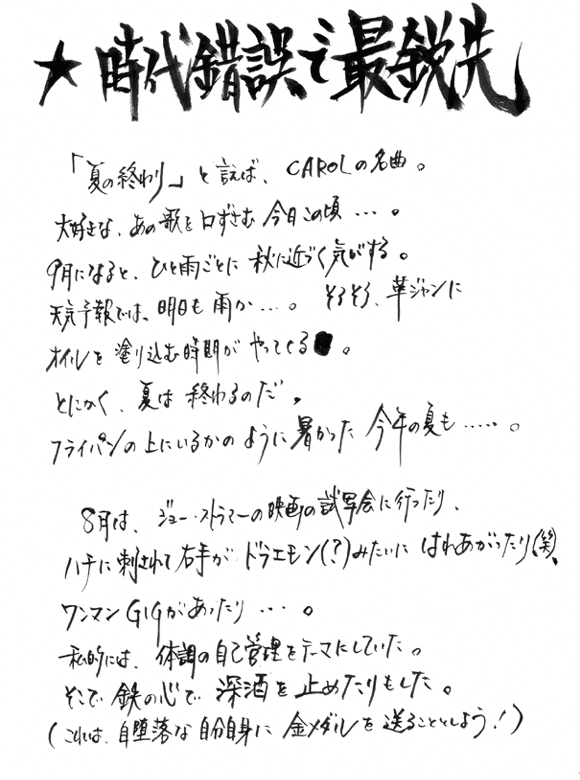 ★時代錯誤で最鋭先
「夏の終わり」と言えば、CAROLの名曲。
大好きな、あの歌を口ずさむ今日この頃…。
9月になると、ひと雨ごとに秋に近づく気がする。
天気予報では、明日も雨か…。そろそろ、革ジャンに
オイルを塗り込む時期がやってくる。
とにかく、夏は終わるのだ。
フライパンの上にいるかのように暑かった今年の夏も……。
8月は、ジョー・ストラマーの映画の試写会に行ったり、
ハチに刺されて右手がドラエモン(?)みたいにはれあがったり(笑)、
ワンマンGIGがあったり…。
私的には、体調の自己管理をテーマにしていた。
そこで鉄の心で深酒を止めたりもした。
(これは、自堕落な自分自身に金メダルを送ることとしよう!)